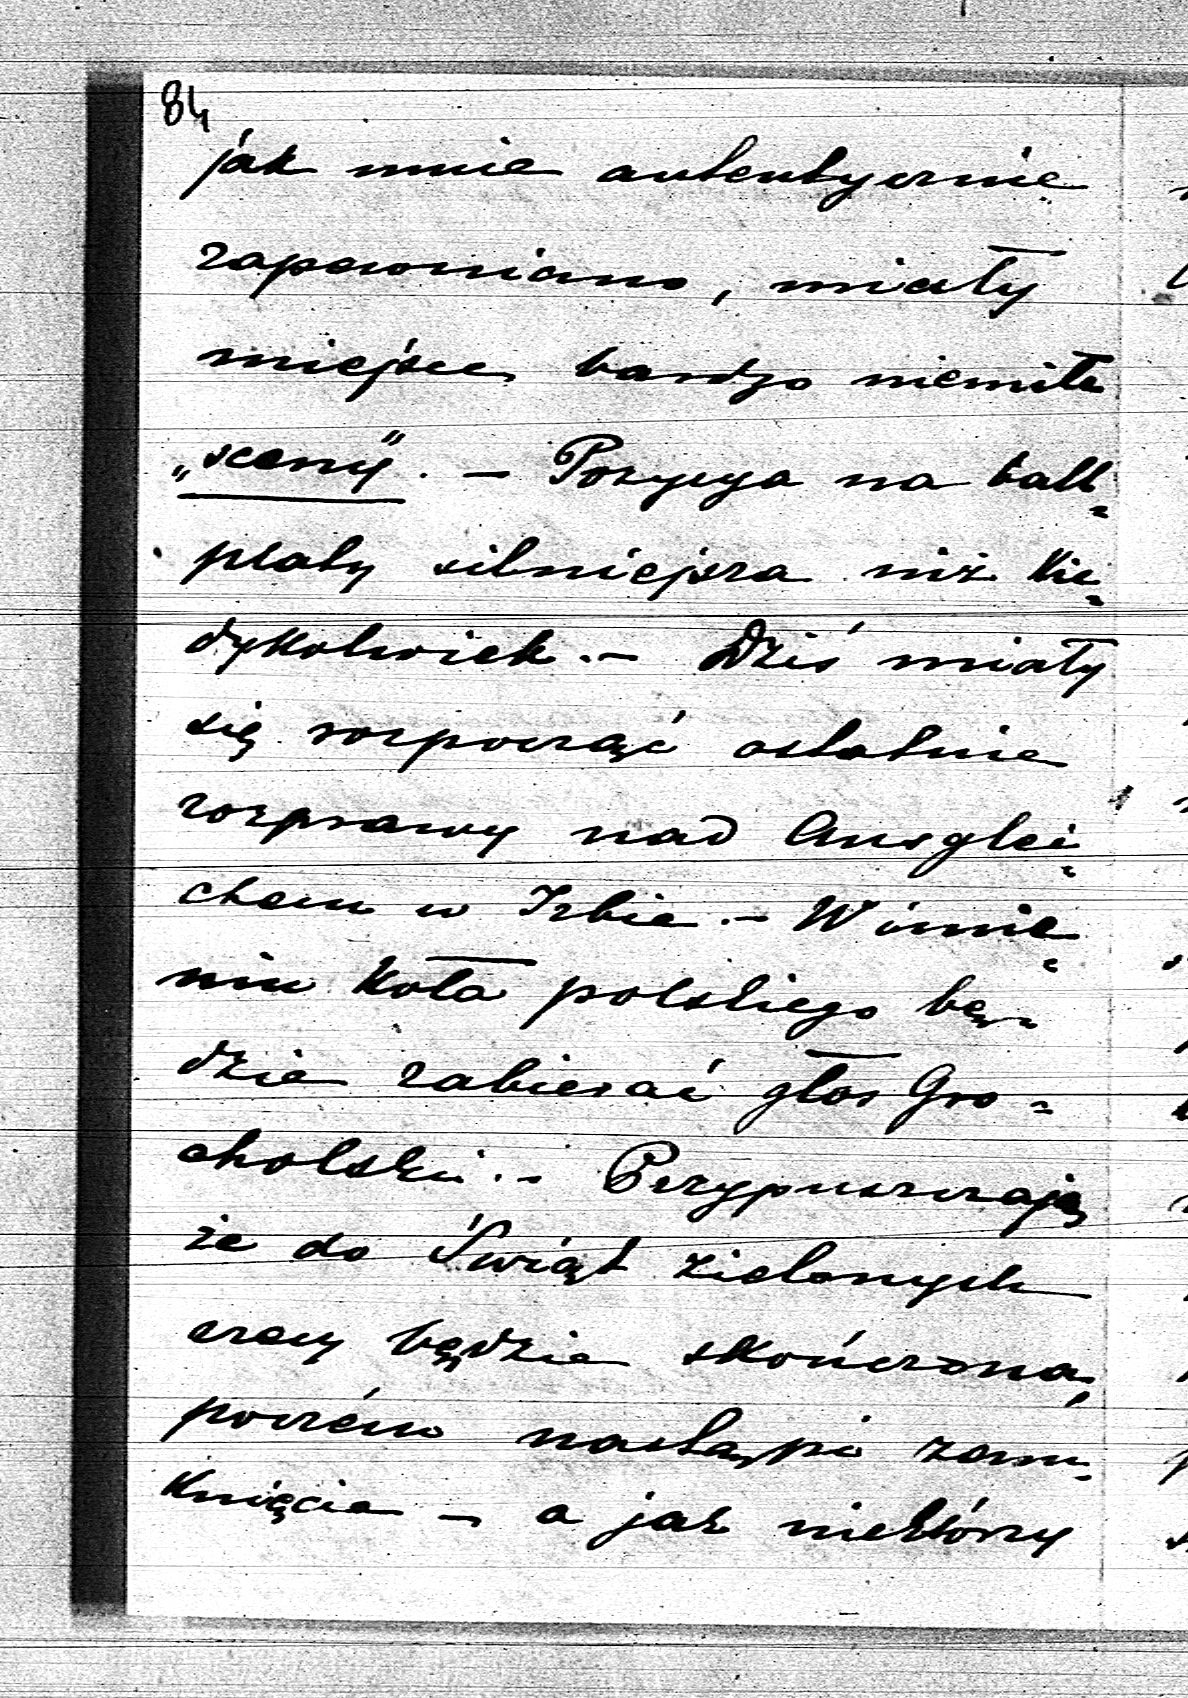 84
jak mnie autentycznie
zapewniano, miały
miejsce bardzo niemiłe
„sceny". – Pozycya na ball=
platy silniejsza niż kie=
dykolwiek. – Dziś miały
się rozpocząć ostatnie
rozprawy nad Ausglei=
chem w Izbie. – W imie=
niu Koła polskiego bę=
dzie zabierać głos Gro=
cholski. – Przypuszczają
że do Świąt zielonych
rzecz będzie skończona,
poczém nastąpi zam=
knięcie – a jak niektórzy